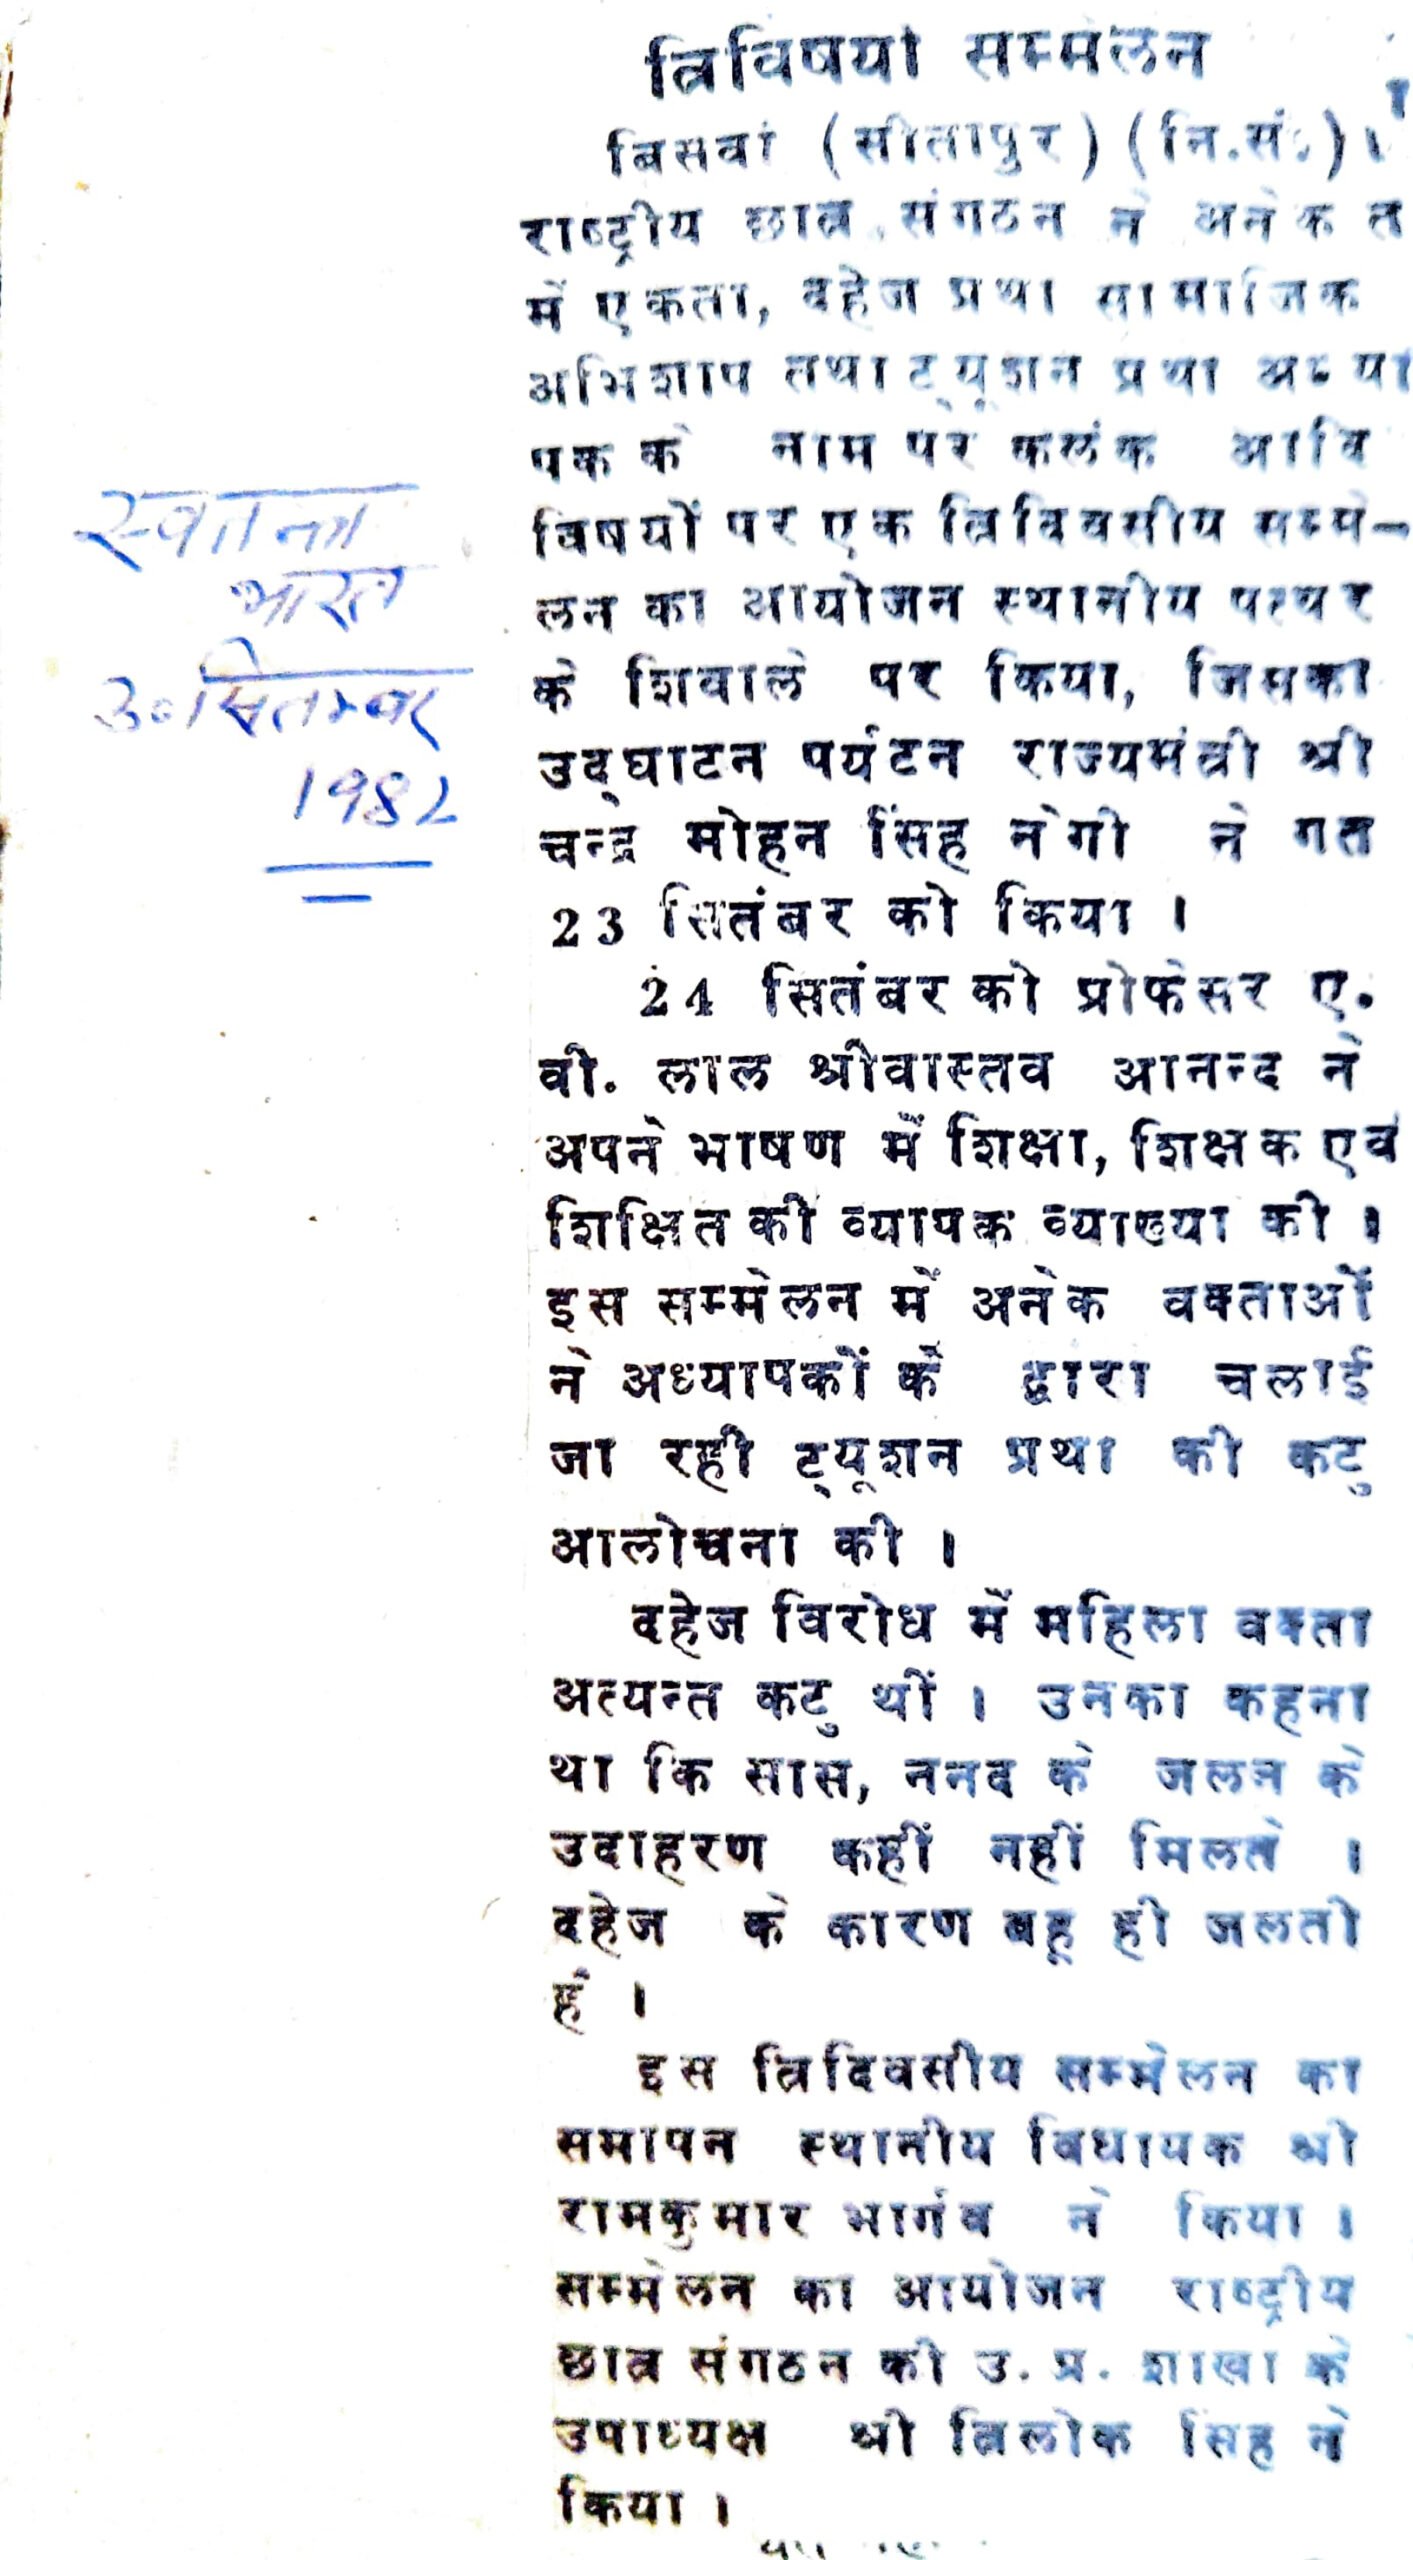 त्रिविषयी सम्मेलन
बिसवां (सीतापुर) (नि.सं.)।
राष्ट्रीय छात्र संगठन ने अनेकत
में एकता, दहेज प्रथा सामाजिक
अभिशाप तथा ट्यूशन प्रथा अध्या
पक के नाम पर कलंक आदि
विषयों पर एक त्रिदिवसीय सम्मे-
लन का आयोजन स्थानीय पत्थर
के शिवाले पर किया, जिसका
उद्घाटन पर्यटन राज्यमंत्री श्री
चन्द्र मोहन सिंह नेगी ने गत
23 सितंबर को किया ।
24 सितंबर को प्रोफेसर ए.
वी. लाल श्रीवास्तव आनन्द ने
अपने भाषण में शिक्षा, शिक्षक एवं
शिक्षित की व्यापक व्याख्या की ।
इस सम्मेलन में अनेक वक्ताओं
ने अध्यापकों के द्वारा चलाई
जा रही ट्यूशन प्रथा की कटु
आलोचना की ।
दहेज विरोध में महिला वक्ता
अत्यन्त कटु थीं । उनका कहना
था कि सास, ननद के जलन के
उदाहरण कहीं नहीं मिलते ।
दहेज के कारण बहू ही जलती
हैं ।
इस त्रिदिवसीय सम्मेलन का
समापन स्थानीय विधायक श्री
रामकुमार भार्गव ने किया ।
सम्मेलन का आयोजन राष्ट्रीय
छात्र संगठन की उ. प्र. शाखा के
उपाध्यक्ष श्री त्रिलोक सिंह ने
किया ।
स्वतन्त्र
भारत
30 सितम्बर
1982